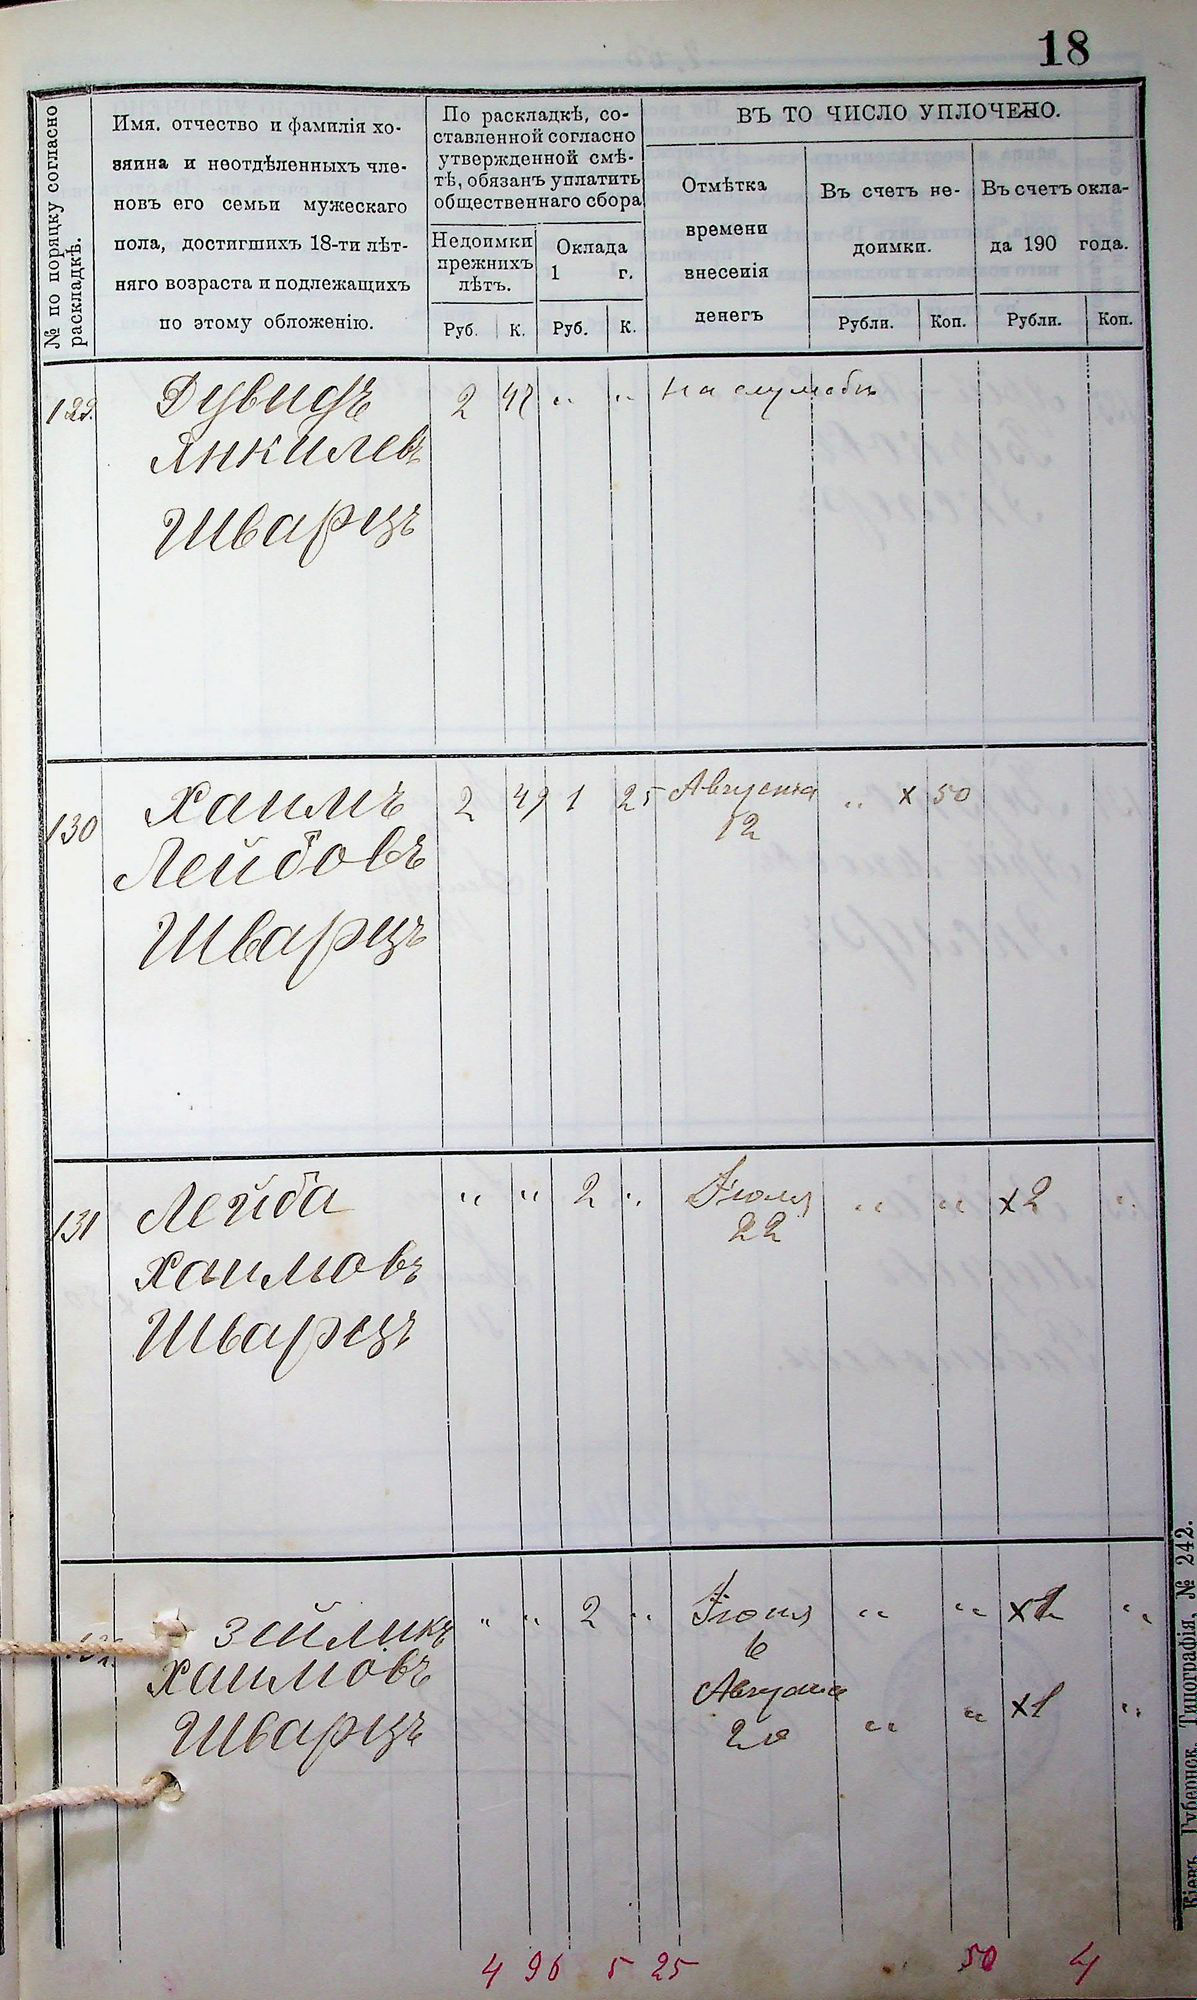 18
№ по порядку согласно раскладкѣ.
Имя, отчество и фамилія хо-
зяина и неотдѣленныхъ чле-
новъ его семьи мужескаго
пола, достигшихъ 18-ти лѣт-
няго возраста и подлежащихъ
по этому обложенію.
По раскладкѣ, со-
ставленной согласно
утвержденной смѣ-
тѣ, обязанъ уплатить
общественнаго сбора
Недоимки
прежнихъ
лѣтъ.
Оклада
1 г.
Руб. К. Руб. К.
ВЪ ТО ЧИСЛО УПЛОЧЕНО.
Отмѣтка
времени
внесенія
денегъ
Въ счетъ не-
доимки.
Въ счетъ окла-
да 190 года.
Рубли. Коп. Рубли. Коп.
129. Дувидъ 2 47 " " На службѣ
Янкилевъ
Шварцъ
130 Хаимъ 2 49 1 25 Августа " х 50
Лейбовъ 12
Шварцъ
131 Лейба " " 2 " Іюля " " х2 "
Хаимовъ 22
Шварцъ
132. Зейликъ " " 2 " Іюня " " х1 "
Хаимовъ 6
Шварцъ Августа " " х1 "
20
4 96 5 25 50 4
Кіевъ, Губернск. Типографія, № 242.